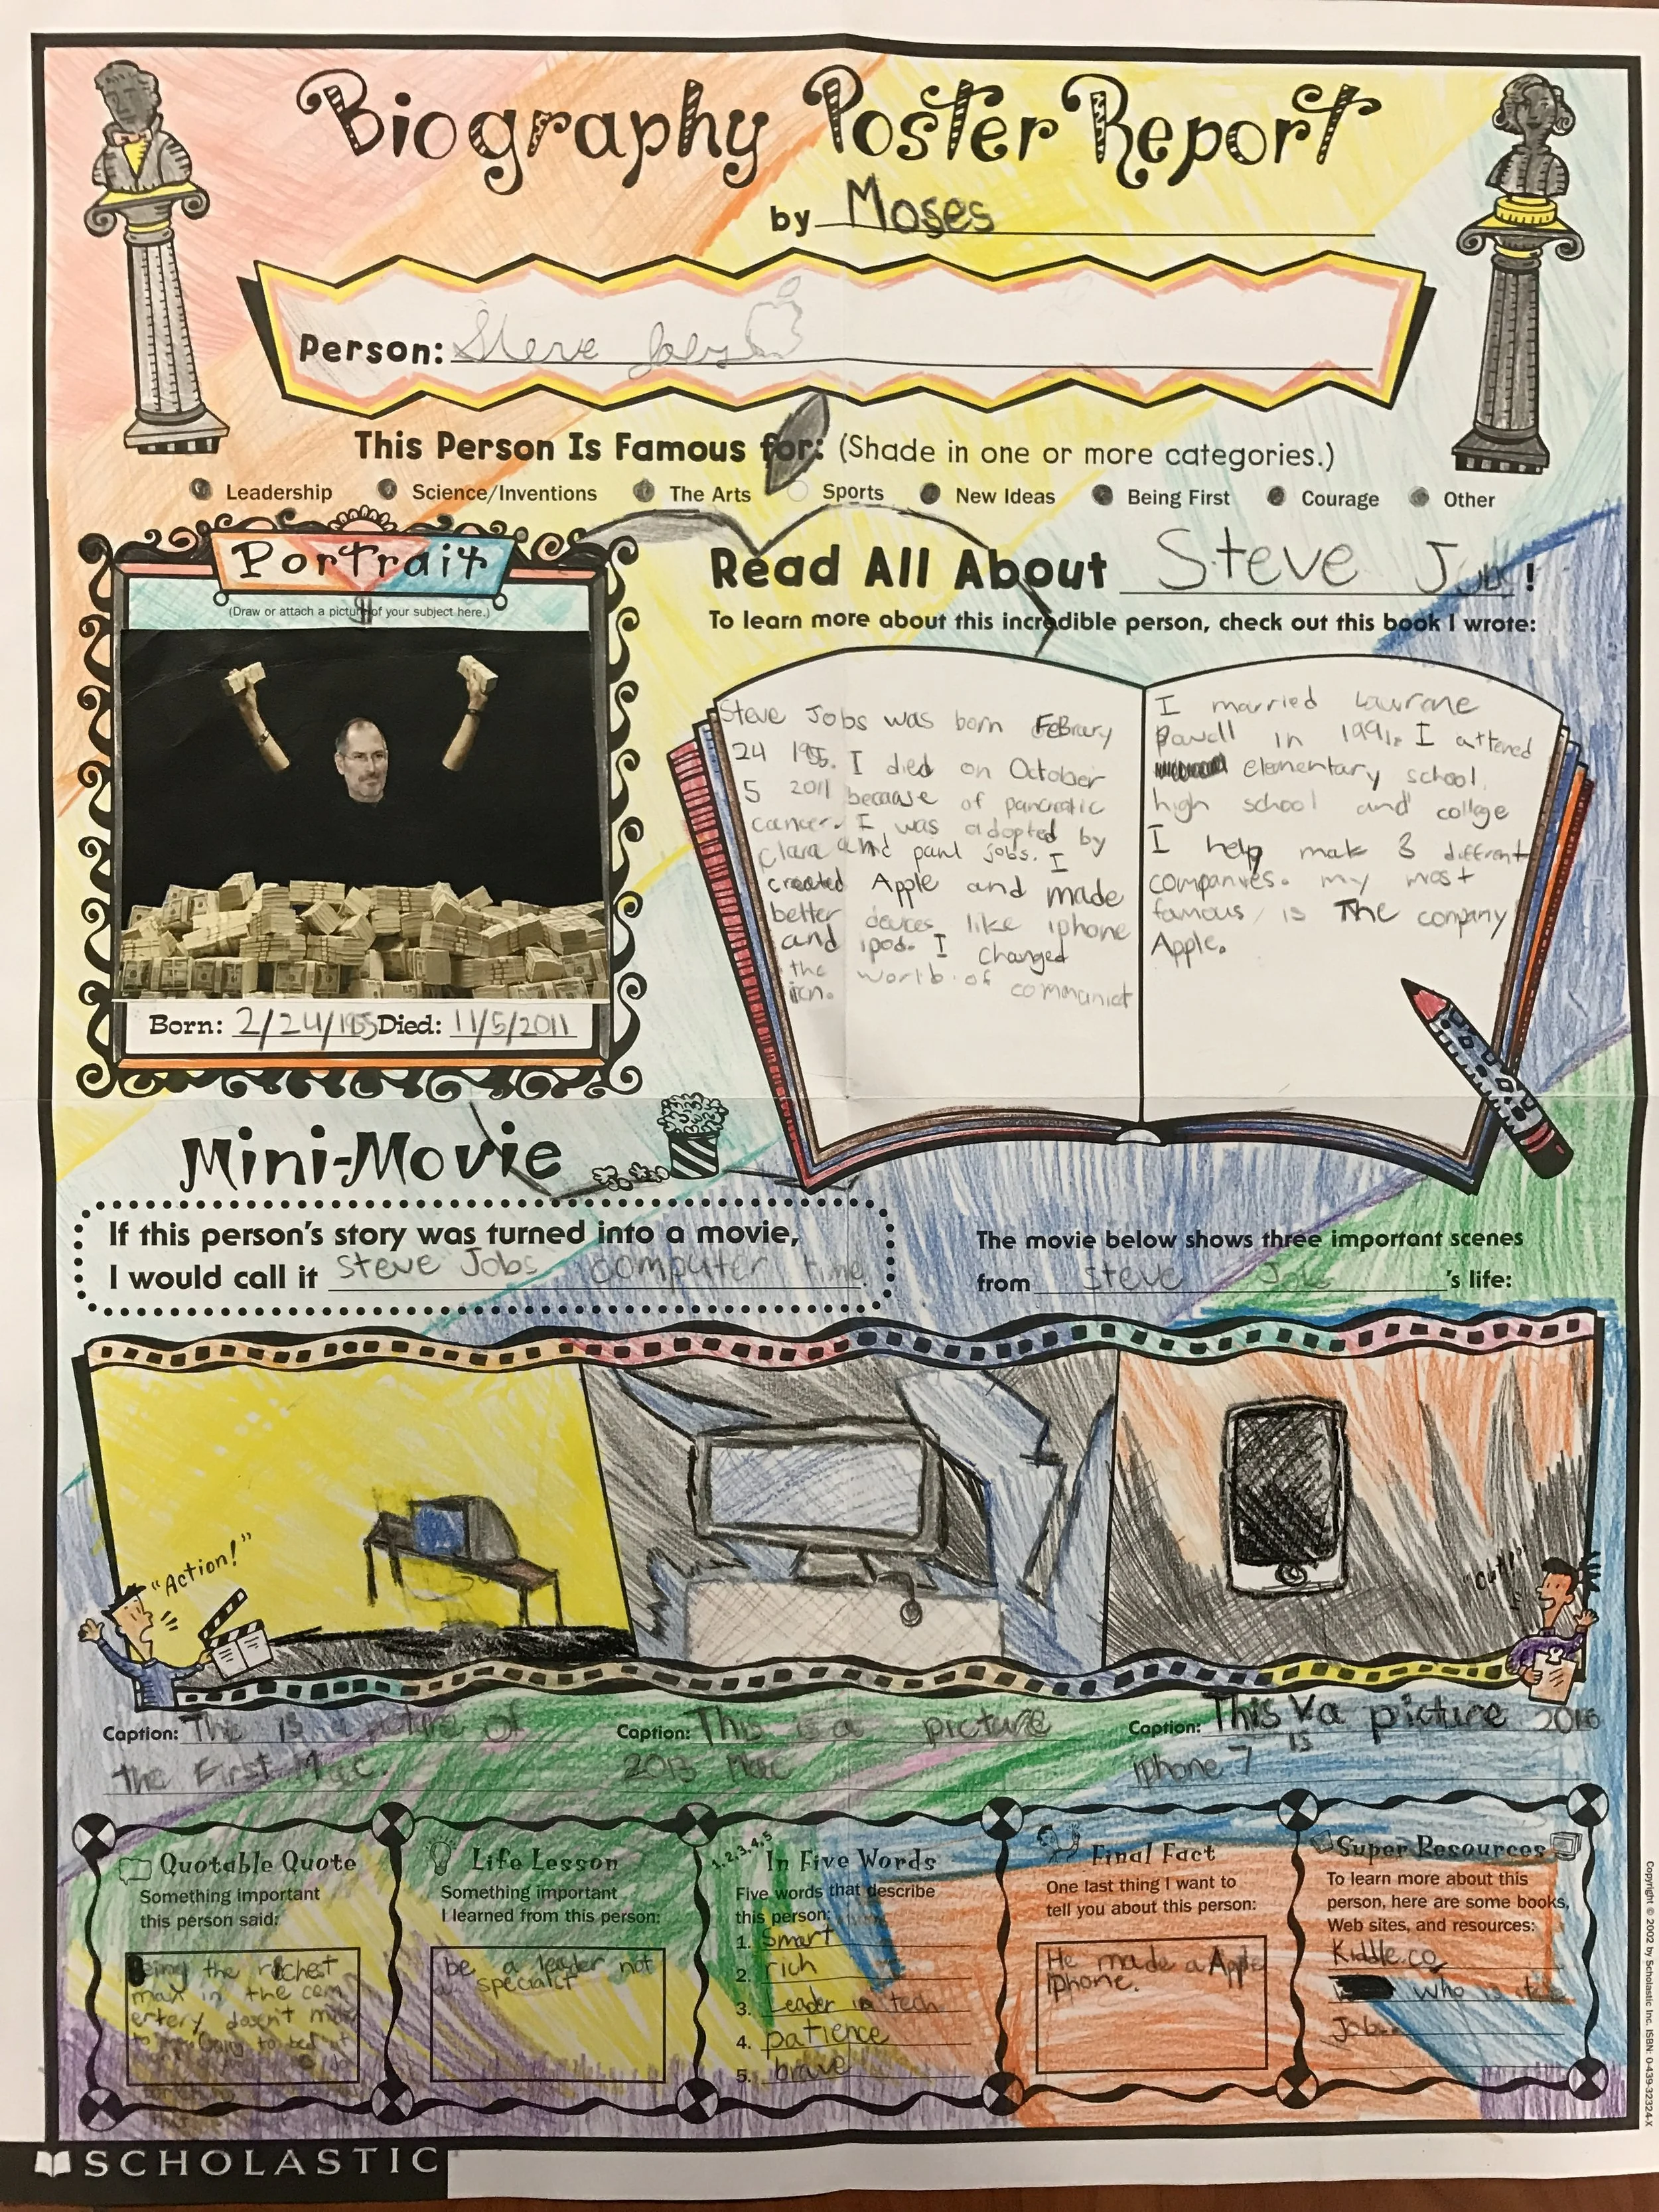 Biography Poster Report
by Moses
Person: Steve Jobs
This Person Is Famous for: (Shade in one or more categories.)
Leadership Science/Inventions The Arts Sports New Ideas Being First Courage Other
Portrait
(Draw or attach a picture of your subject here.)
Born: 2/24/1955 Died: 11/5/2011
Read All About Steve Jobs!
To learn more about this incredible person, check out this book I wrote:
Steve Jobs was born FeBrury
24 1955. I died on October
5 2011 because of pancreatic
cancer. I was adopted by
Clara and paul jobs. I
created Apple and made
better devices like iphone
and ipod. I changed
the world of communicat
icn.
I married Lawrane
Powell in 1991. I attened
elementary school,
high school and college
I help mak 3 diffrent
companies. my most
famous is The company
Apple.
Mini-Movie
If this person's story was turned into a movie,
I would call it Steve Jobs computer time
The movie below shows three important scenes
from Steve Jobs 's life:
"Action!"
"Cut!"
Caption: The is a picture of
the First Mac.
Caption: This is a picture
2013 Mac
Caption: This is a picture 2016
iphone 7
Quotable Quote
Something important
this person said:
Being the richest
man in the cem
entery doesn't matter
to me Going to bed at
Life Lesson
Something important
I learned from this person:
be a leader not
an specialist
1, 2, 3, 4, 5
In Five Words
Five words that describe
this person:
1. Smart
2. rich
3. Leader in tech
4. patience
5. brave
Final Fact
One last thing I want to
tell you about this person:
He made a Apple
iPhone.
Super Resources
To learn more about this
person, here are some books,
Web sites, and resources:
Kiddle.co
who is
Jobs
SCHOLASTIC
Copyright © 2002 by Scholastic Inc. ISBN: 0-439-32324-X